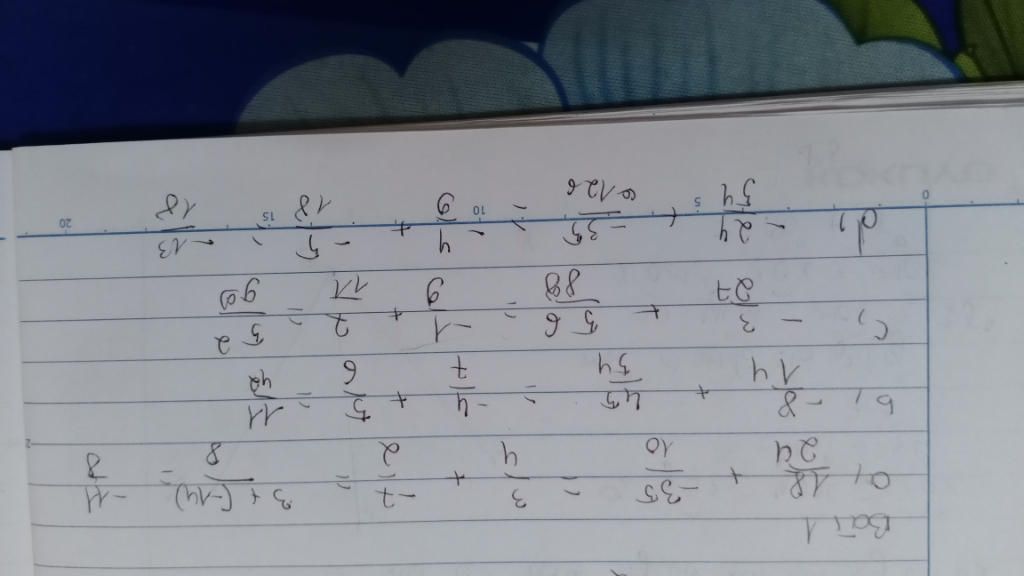 Bài 1
a, 18/24 + -35/10 = 3/4 + -7/2 = 3+(-14)/8 = -11/8
b, -8/14 + 45/54 = -4/7 + 5/6 = 11/42
c, -3/27 + 56/88 = -1/9 + 7/11 = 52/99
d, -24/54 + -35/126 = -4/9 + -5/18 = -13/18
0 5 10 15 20